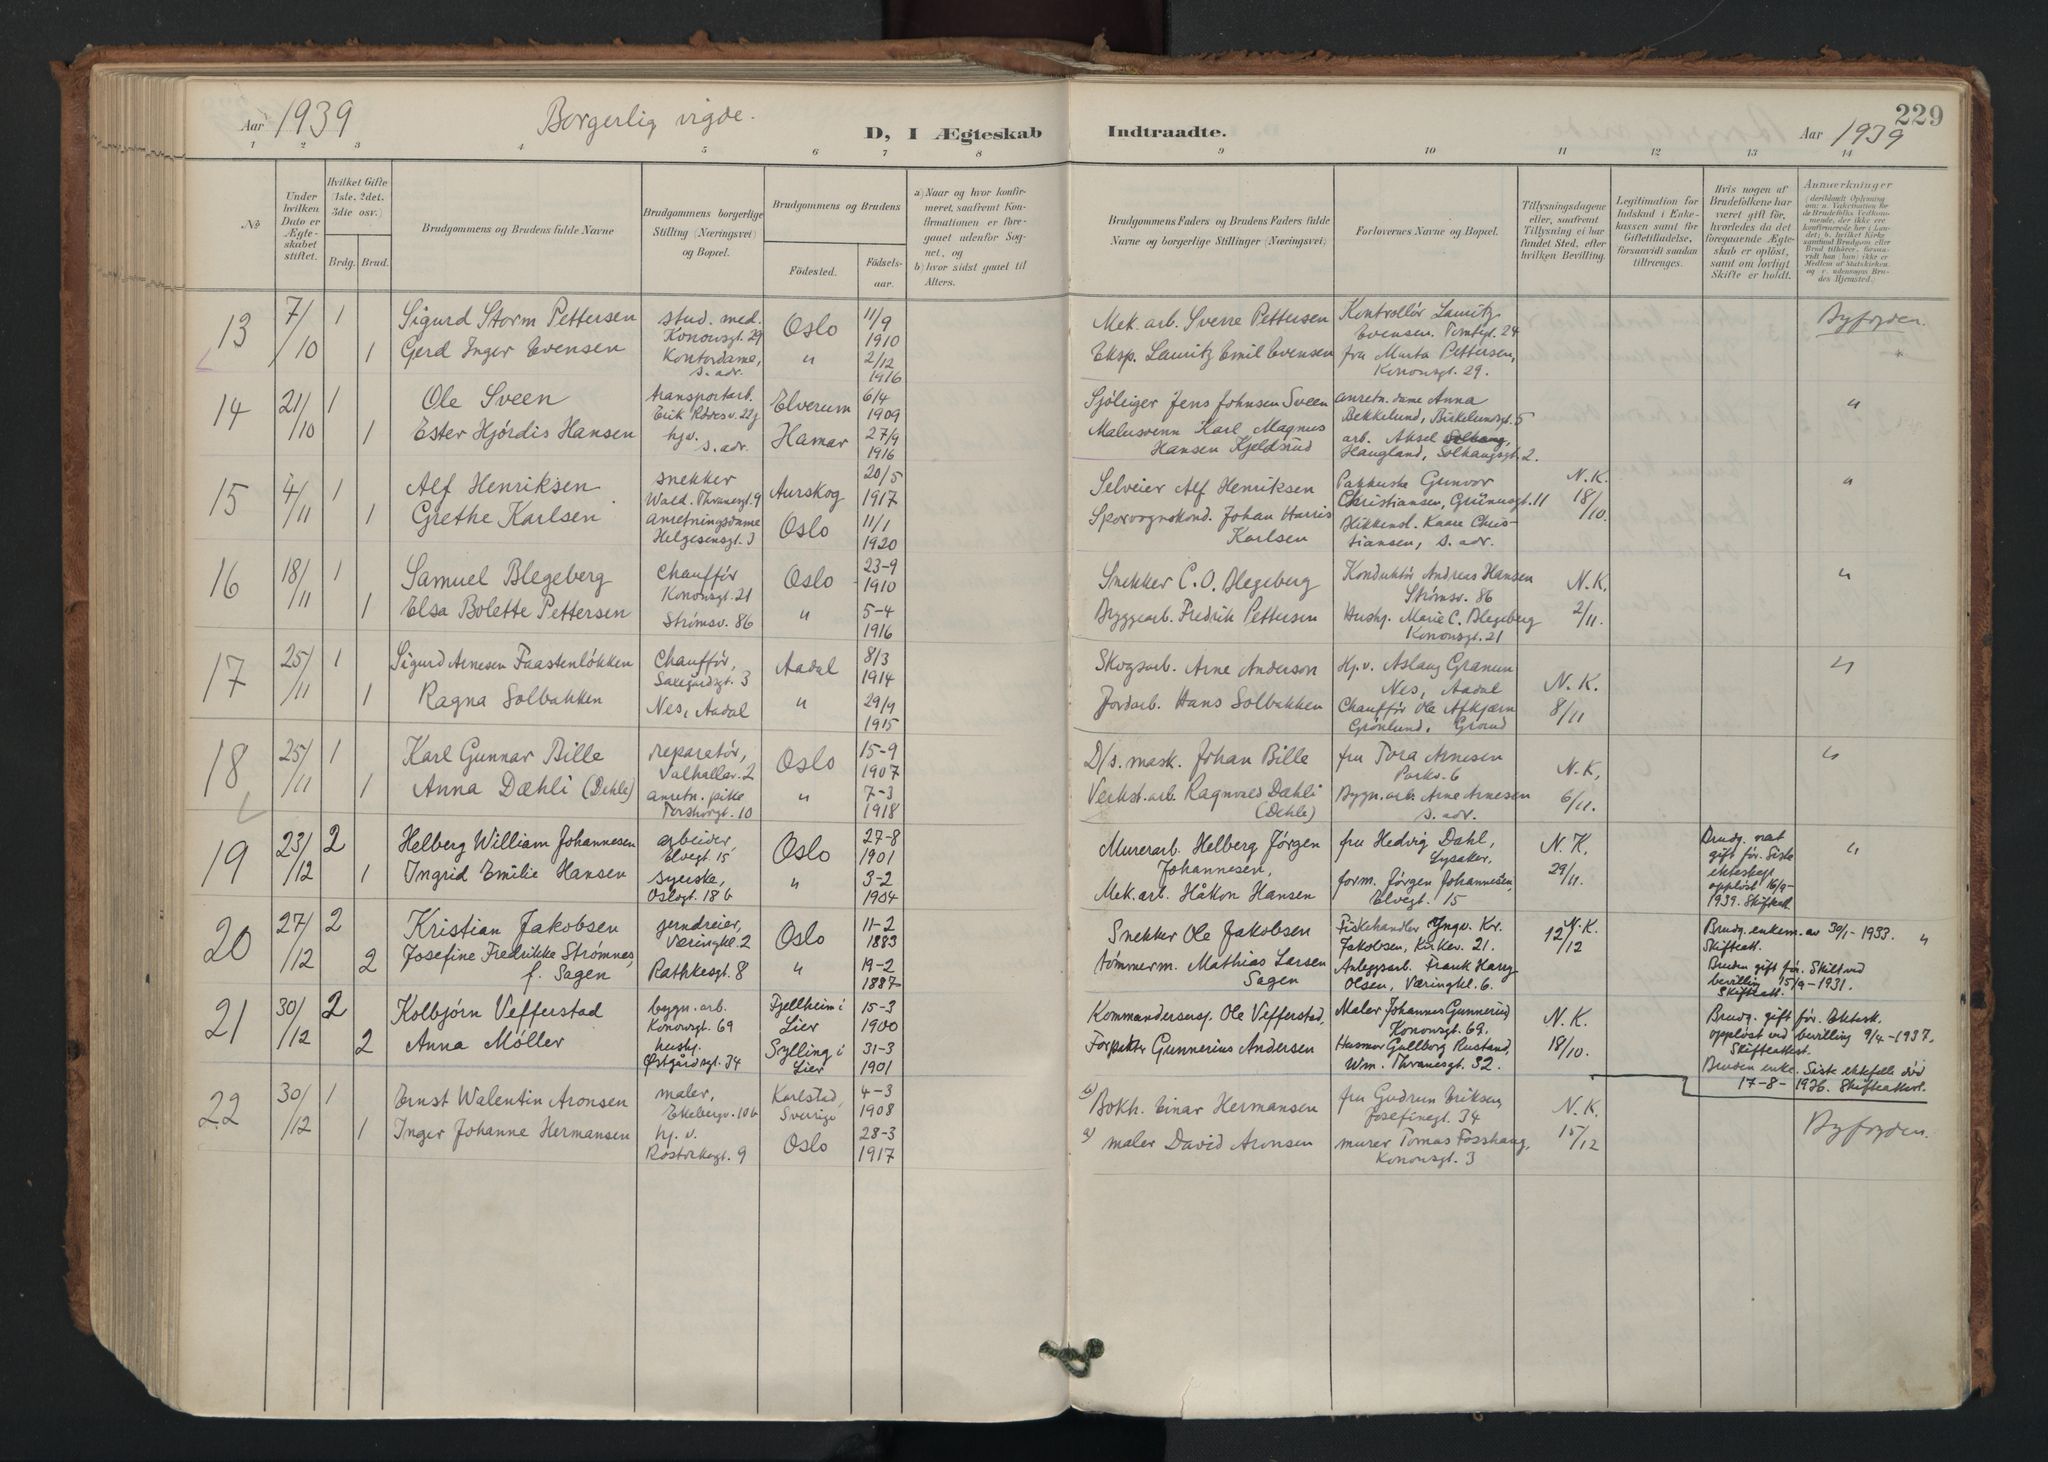 Aar 1939 Borgerlig vigde. D, I Ægteskab
1 2 3 4 5 6 7 8
No
Under hvilken Dato er Ægteskabet stiftet.
Hvilket Gifte (1ste, 2det, 3die osv.)
Brdg. Brud.
Brudgommens og Brudens fulde Navne
Brudgommens borgerlige Stilling (Næringsvei) og Bopæl.
Brudgommens og Brudens
Fødested. Fødselsaar.
a) Naar og hvor konfirmeret, saafremt Konfirmationen er foregaaet udenfor Sognet, og
b) hvor sidst gaaet til Alters.
13 7/10 1 Sigurd Storm Pettersen stud. med. Kononsgt. 29 Oslo 11/9 1910
1 Gerd Inger Evensen Kontordame, s. adr. " 2/12 1916
14 21/10 1 Ole Sveen transportarb. Erik Rødesv. 22 Elverum 6/4 1909
1 Ester Hjørdis Hansen hjv. s. adr. Hamar 27/9 1916
15 4/11 1 Alf Henriksen snekker Wald. Thranesgt. 9 Aurskog 20/5 1917
1 Grethe Karlsen anretningsdame Helgesensgt. 3 Oslo 11/1 1920
16 18/11 1 Samuel Blegeberg Chauffør Kononsgt. 21 Oslo 23-9 1910
1 Elsa Bolette Pettersen Strømsv. 86 " 5-4 1916
17 25/11 1 Sigurd Arnesen Faastenløkken Chauffør, Saxegårdsgt. 3 Aadal 8/3 1914
1 Ragna Solbakken Nes, Aadal " 29/4 1915
18 25/11 1 Karl Gunnar Bille reparatør, Valhallav. 2 Oslo 15-9 1907
1 Anna Dæhli (Dehle) anretn. pike Torshovgt. 10 " 7-3 1918
19 23/12 2 Helberg William Johannesen arbeider, Elvegt. 15 Oslo 27-8 1901
1 Ingrid Emilie Hansen syerske, Oslogt. 18 b " 3-2 1904
20 27/12 2 Kristian Jakobsen jerndreier, Væringkl. 2 Oslo 11-2 1883
2 Josefine Fredrikke Strømnes, f. Sagen Rathkesgt. 8 " 19-2 1887
21 30/12 2 Kolbjørn Vefferstad bygn. arb. Kononsgt. 69 Fjellheim i Lier 15-3 1900
2 Anna Møller hushj. Østgårdsgt. 34 Sylling i Lier 31-3 1901
22 30/12 1 Ernst Walentin Aronsen maler, Ekebergv. 10b Karlstad, Sverige 4-3 1908
1 Inger Johanne Hermansen hj. v. Rostockgt. 9 Oslo 28-3 1917
Indtraadte. Aar 1939 229
9 10 11 12 13 14
Brudgommens Faders og Brudens Faders fulde Navne og borgerlige Stillinger (Næringsvei)
Forlovernes Navne og Bopæl.
Tillysningsdagene eller, saafremt Tillysning ei har fundet Sted, efter hvilken Bevilling.
Legitimation for Indskud i Enkekassen samt for Giftetilladelse, forsaavidt saadan tiltrænges.
Hvis nogen af Brudefolkene har været gift før, hvorledes da det foregaaende Ægteskab er opløst, samt om lovligt Skifte er holdt.
Anmærkninger
Mek. arb. Sverre Pettersen Kontrollør Lauritz Evensen. Tomtegt. 24 Byfogden.
Eksp. Lauritz Emil Evensen fru Marta Pettersen, Kononsgt. 29.
Jens Johnsen Sveen anretn. dame Anna Bekkelund, Birkelundsgt. 5 "
Malersvenn Karl Magnus Hansen Kjeldsrud arb. Aksel Haugland, Solhaugsgt. 2.
Selveier Alf Henriksen Gunvor Christiansen, Grünersgt. 11 N. K. 18/10. "
Sporvognskond. Johan Harris Karlsen Kaare Christiansen, s. adr.
Snekker C. O. Blegeberg Konduktør Andreas Hansen Strømsv. 86 N. K. 2/11. "
Byggearb. Fredrik Pettersen Hushj. Marie C. Blegeberg Kononsgt. 21
Skogsarb. Arne Anderson Hp. v. Aslaug Granum Nes, Aadal N. K. 8/11 "
Jordarb. Hans Solbakken Chauffør Ole Grønlund,
D/s. mask. Johan Bille fru Tora Arnesen Parkv. 6 N. K. 6/11. "
Verkst. arb. Ragnvald Dæhli (Dehle) Bygn. arb. Arne Arnesen s. adr.
Murerarb. Helberg Jørgen Johannesen, fru Hedvig Dahl, Lysaker. N. K. 29/11. Brudg. vært gift før. Siste ekteskap oppløst 16/9-1939. Skifteatt. "
Mek. arb. Håkon Hansen form. Jørgen Johannesen, Elvegt. 15
Snekker Ole Jakobsen Fiskehandler Yngv. Kr. Jakobsen, Kirkev. 21. N. K. 12/12 Brudg. enkem. av 30/1-1933. Skifteatt. "
tømmerm. Mathias Larsen Sagen Anleggsarb. Frank Harry Olsen, Væringkl. 6. Bruden gift før. Skilt ved bevilling 15/9-1931. Skifteatt.
Kommandersersj. Ole Vefferstad, Maler Johannes Gunnerud Kononsgt. 69. N. K. 18/10. Brudg. gift før. Ektesk. oppløst ved bevilling 9/4-1937. Skifteattest.
Forpakter Gunnerius Andersen Husmor Gullborg Rustand, Wm. Thranesgt. 32. Bruden enke. Siste ektefelle død 17-8-1936. Skifteattest.
b) Bokh. Einar Hermansen fru Gudrun Eriksen, Josefinegt. 34 N. K. 15/12 Byfogden.
a) maler David Aronsen murer Tomas Fosshaug, Kononsgt. 3